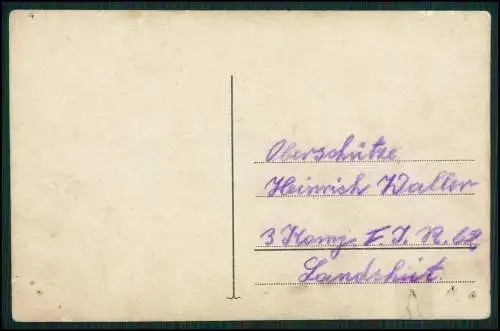 Oberschütze
Heinrich Waller
3 Komp I. J. R. 62
Landshut.